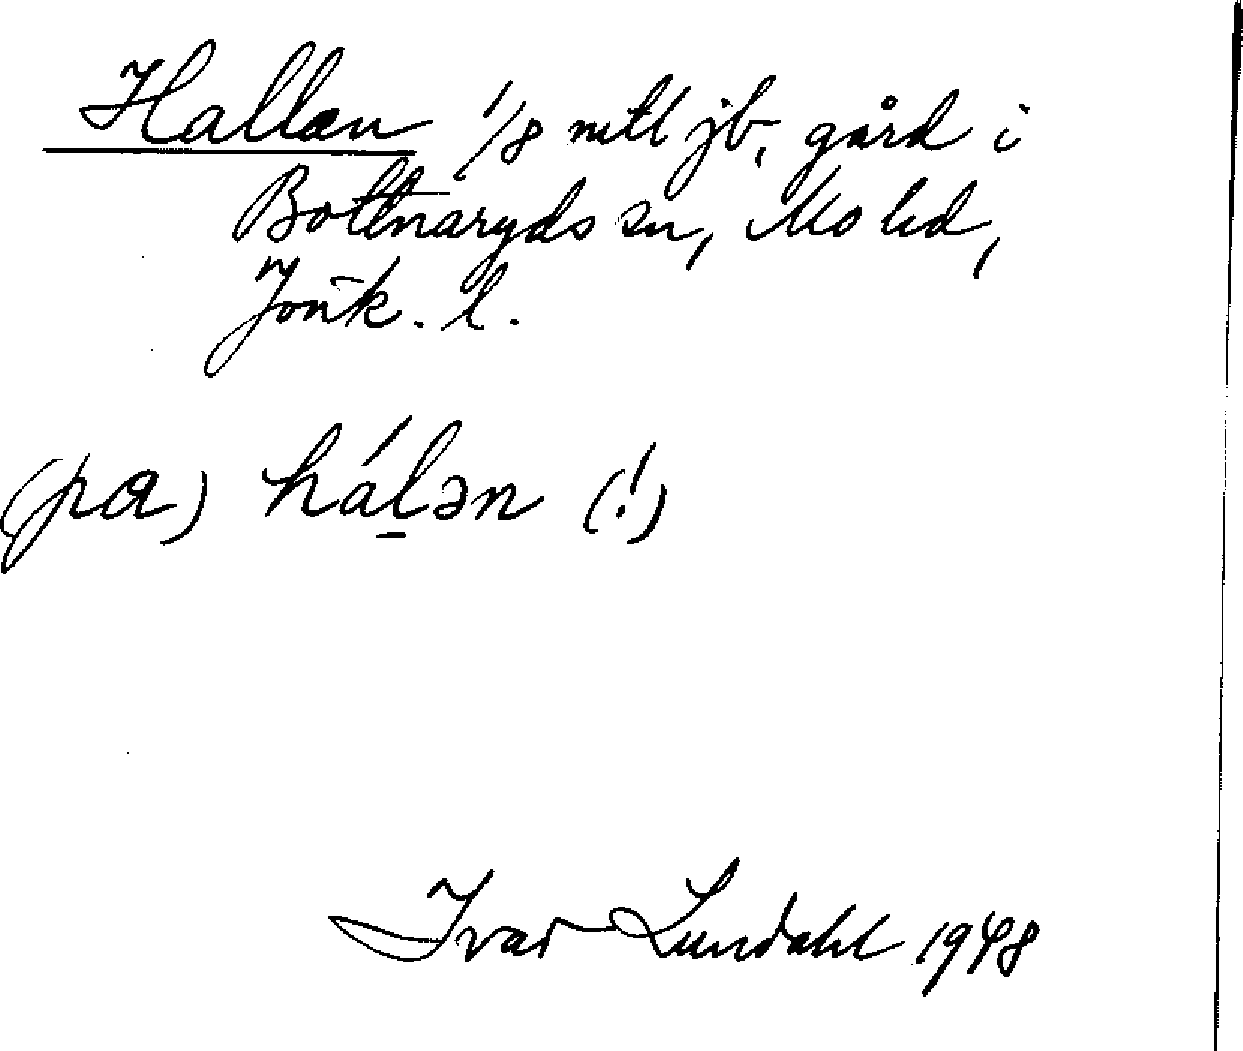 Hallen 1/8 mtl jb, gård i
Bottnaryds sn, Mo hd,
Jönk. l.
(pa) hálən (!)
Ivar Lundahl 1948